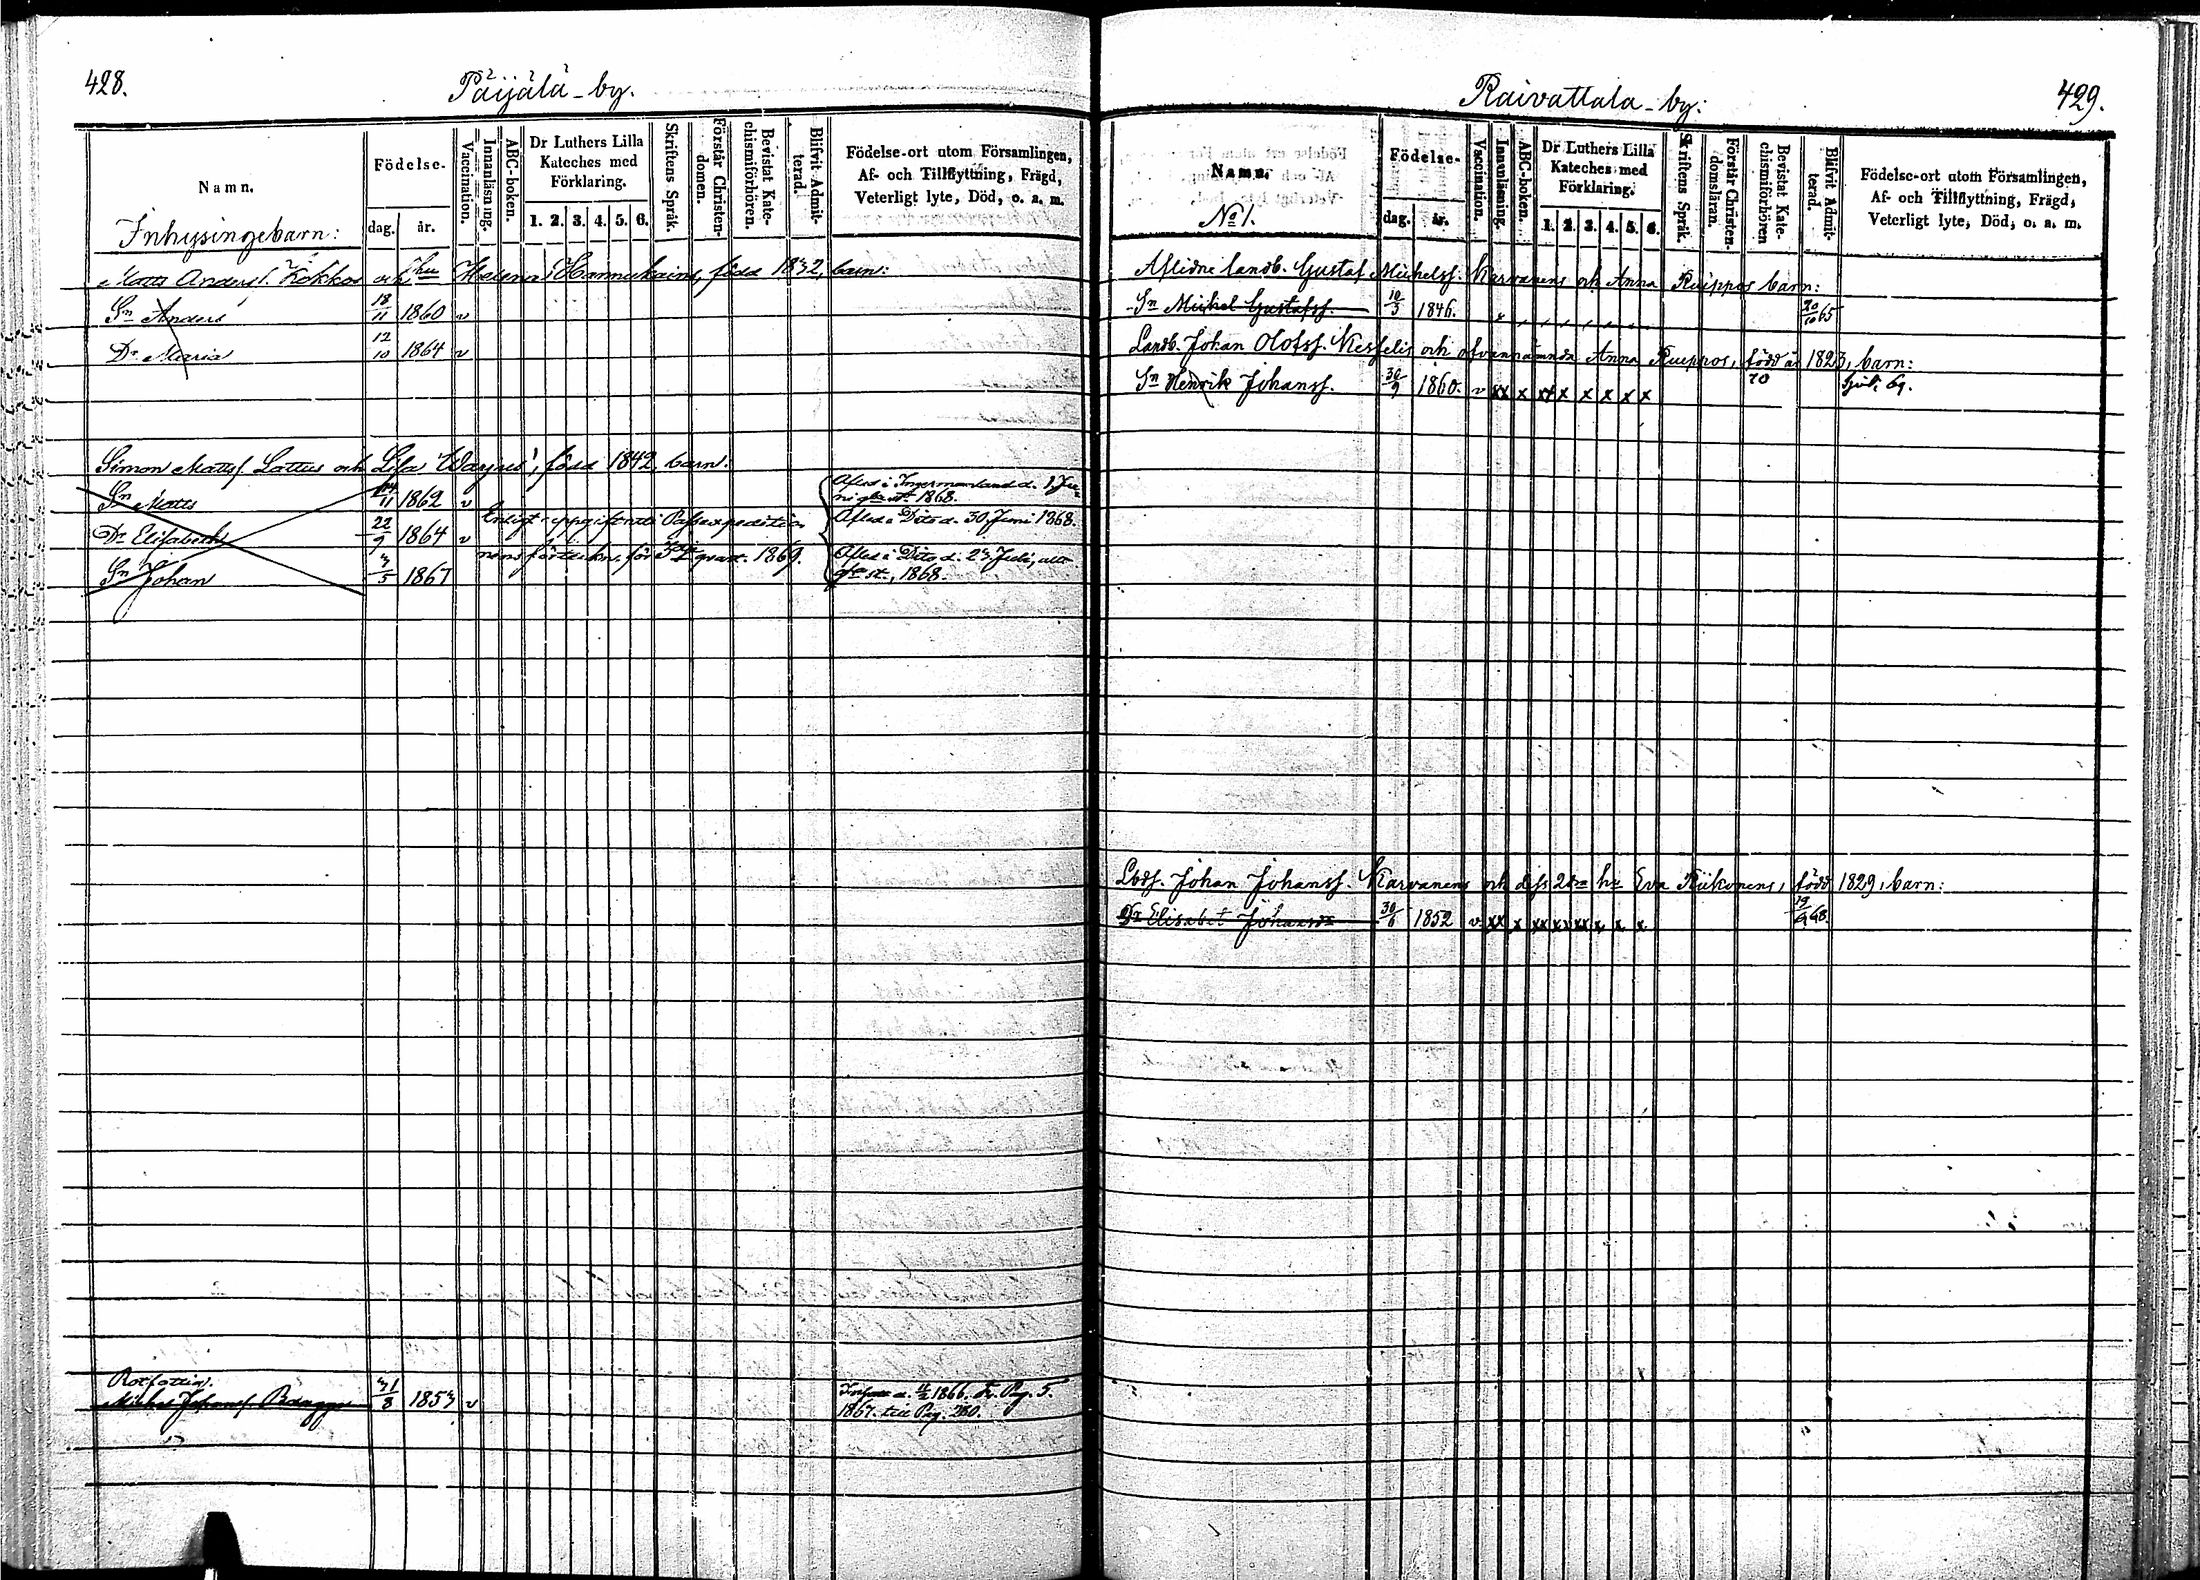 428.
Päijälä-by.
Namn.
Födelse-
dag.
år.
Vaccination.
Innanläsning.
ABC-boken.
Dr Luthers Lilla
Kateches med
Förklaring.
1. 2. 3. 4. 5. 6.
Skriftens Språk.
Förstår Christen-
domen.
Bevistat Kate-
chismiförhören.
Blifvit Admit-
terad.
Födelse-ort utom Församlingen,
Af- och Tillflyttning, Frägd,
Veterligt lyte, Död, o. a. m.
Inhysingebarn:
Matts Andersf. Kokkos och hu Helena Hannukains, född 1832, barn:
Sn Anders 18/11 1860 v
Dr Maria 12/10 1864 v
Simon Mattsf. Lattus och Lisa Warjus, född 1842, barn:
Sn Matts 11 1862 v
Afled i Ingermanland d. 1 Ju-
ni 1868.
Dr Elisabeth 22/9 1864 v
Enligt uppgift uti Passexpeditio
Afled i Dito d. 30 Juni 1868.
nens förteckn. för qvart. 1869.
Sn Johan 3/5 1867
Afled i Dito d. 23 Juli,
st., 1868.
Michel Johansf. 31/8 1853 v
1866. Fr. Pag. 5.
1867. till Pag. 280.
429.
Raivattala-by:
Namn.
No 1.
Födelse-
dag.
år.
Vaccination.
Innanläsning.
ABC-boken.
Dr Luthers Lilla
Kateches med
Förklaring.
1. 2. 3. 4. 5. 6.
Skriftens Språk.
Förstår Christen-
domsläran.
Bevistat Kate-
chismiförhören
Blifvit Admit-
terad.
Födelse-ort utom Församlingen,
Af- och Tillflyttning, Frägd,
Veterligt lyte, Död, o. a. m.
Aflidne landb. Gustaf Michelsf. Karvanens och Anna Ruippos barn:
Sn Mickel Gustafsf. 10/3 1846. 20/10 65
Landb. Johan Olofsf. och ofvannämnda Anna Ruippos, född år 1823, barn:
Sn Henrik Johansf. 30/9 1860. v xx x xx x x x x x 70
Johan Johansf. Karvanens och dess 2dra hu Eva Riikonens, född 1829, barn:
Dr Elisabet Johansdr 30/6 1852 v xx x xx xx xx x x x 19/9 68.